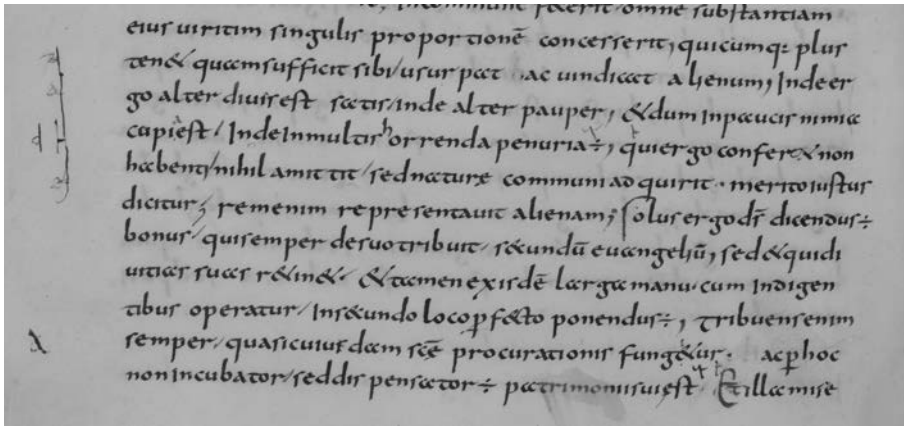 incommune fecerit omne substantiam
eius uiritim singulis proportionē concesserit; quicumq; plus
ten& quam sufficit sibi / usurpat ac uindicat alienum; Inde er
go alter diues est satis / inde alter pauper; & dum inpaucis nimia
cupi est / Inde In multis horrenda penuria ÷; qui ergo confer& non
habenti / nihil amittit / sed naturæ communi adquirit · merito iustus
dicitur; rem enim representauit alienam; Solus ergo d̄s dicendus ÷
bonus / qui semper de suo tribuit / secundū euangeliū; sed & qui di
uitias suas r&in& / & tamen exisdē larga manu cum Indigen
tibus operatur / In secundo loco p̱fecto ponendus ÷; tribuens enim
semper / quasi cuiusdam scē procurationis fung&ur · ac p̱ hoc
non incubator / sed dispensator ÷ patrimonii sui est · Et illa mise
d
X